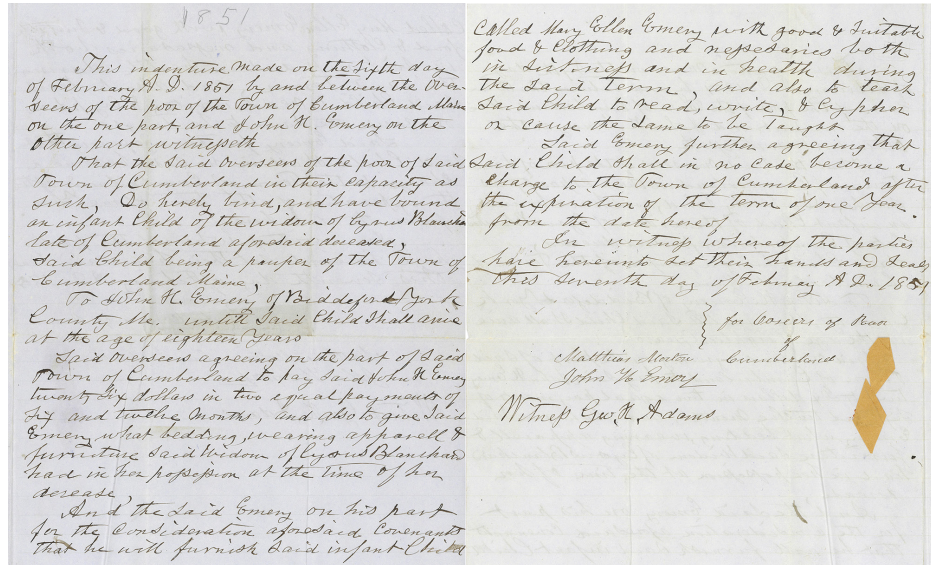 1851
This indenture made on the Sixth day
of February A.D. 1851 by and between the Over-
seers of the poor of the Town of Cumberland Maine
on the one part, and John H. Emery on the
other part witnesseth
That the Said Overseers of the poor of Said
Town of Cumberland in their capacity as
Such, Do hereby bind, and have bound
an infant Child of the widow of Cyrus Blanchard
late of Cumberland aforesaid deceased,
Said Child being a pauper of the Town of
Cumberland Maine,
To John H. Emery of Biddeford York
County Me. until Said Child Shall arive
at the age of eighteen Years
Said Overseers agreeing on the part of Said
Town of Cumberland to pay Said John H Emery
twenty Six dollars in two equal payments of
Six and twelve Months, and also to give Said
Emery what bedding, wearing apparell &
furniture Said Widow of Cyrus Blanchard
had in her possession at the time of her
decease,
And the Said Emery on his part
for the Consideration aforesaid Covenants
that he will furnish Said infant Child
Called Mary Ellen Emery with good & Suitable
food & Clothing and nessesaries both
in Sickness and in health during
the Said term, and also to teach
Said Child to read, write, & Cypher
or cause the Same to be taught
Said Emery further agreeing that
Said Child Shall in no case become a
Charge to the Town of Cumberland after
the expiration of the term of one Year
from the date hereof
In witness whereof the parties
have hereunto Set their hands and Seals
this Seventh day of February A.D. 1851
for of Poor
of
Cumberland
Matthias Morton
John H Emery
Witness Geo. H. Adams